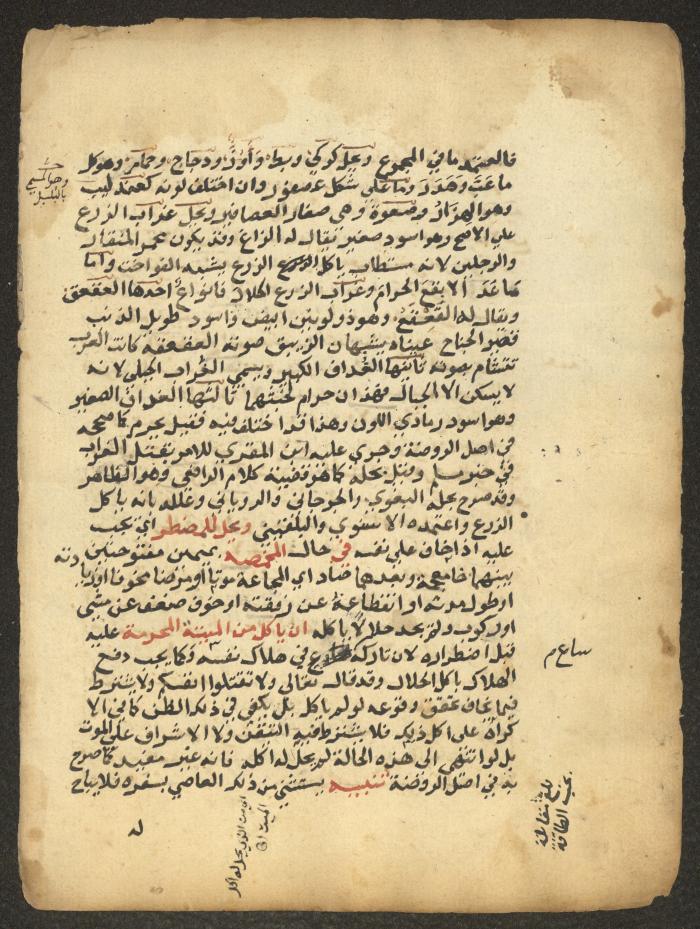 فالمعتمد ما في المجموع ويحل كركي وبط وأوز ودجاج وحمام وهو كل
ما عب وهدر وما على شكل عصفور وان اختلف لونه كعندليب
وهو الهزار وصعوة وهي صغار العصافير ويحل غراب الزرع
على الاصح وهو اسود صغير يقال له الزاغ وقد يكون محمر المنقار
والرجلين لانه مستطاب ياكل الزرع يشبه الفواخت واما
ما عدا الابقع الحرام وغراب الزرع الحلال فانواع احدها العقعق
ويقال له القعقع وهو ذو لونين ابيض واسود طويل الذنب
قصير الجناح عيناه يشبهان الزيبق صوته العقعقه كانت العرب
تتشام بصوته ثانيها الغداف الكبير ويسمى الغراب الجبلي لانه
لا يسكن الا الجبال فهذان حرام لخبثهما ثالثها الغداف الصغير
وهو اسود رمادي اللون وهذا قد اختلف فيه فقيل يحرم كما صححه
في اصل الروضة وجرى عليه ابن المقري للامر بقتل الغراب
في خبر مسلم وقيل بحله كما هو قضية كلام الرافعي وهو الظاهر
وقد صرح بحله البغوي والجرجاني والروياني وعلله بانه ياكل
الزرع واعتمده الاسنوي والبلقيني ويحل للمضطر اي يجب
عليه اذا خاف على نفسه في حال المخمصه بميمين مفتوحتين
بينهما خا معجمة وبعدهما صاد اي المجاعة موتا او مرضا مخوفا او زيادته
او طول مدته او انقطاعه عن رفقته او خوف ضعف عن مشي
او ركوب ولم يجد حلالا ياكله ان ياكل من الميتة المحرمة عليه
قبل اضطراره لان تاركه ساع في هلاك نفسه وكما يجب دفع
الهلاك باكل الحلال وقد قال تعالى ولا تقتلوا انفسكم ولا يشترط
فيما يخاف تحقق وقوعه لو لم ياكل بل يكفي في ذلك الظن كما في الا
كراه على اكل ذلك فلا يشترط فيه التيقن ولا الاشراف على الموت
بل لو انتهى الى هذه الحالة لم يحل له اكله فانه غير مفيد كما صرح
به في اصل الروضة تنبيه يستثنى من ذلك العاصي بسفره فلا يباح
وهو المسمى
بالبلبل
ساع م